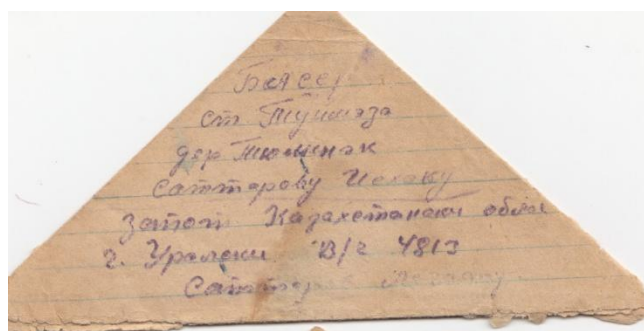 БАССР
ст Туймаза
дер Тюменяк
Саттарову Исхаку
Казахстански облас
г. Уральски В/г 4813
Саттаров